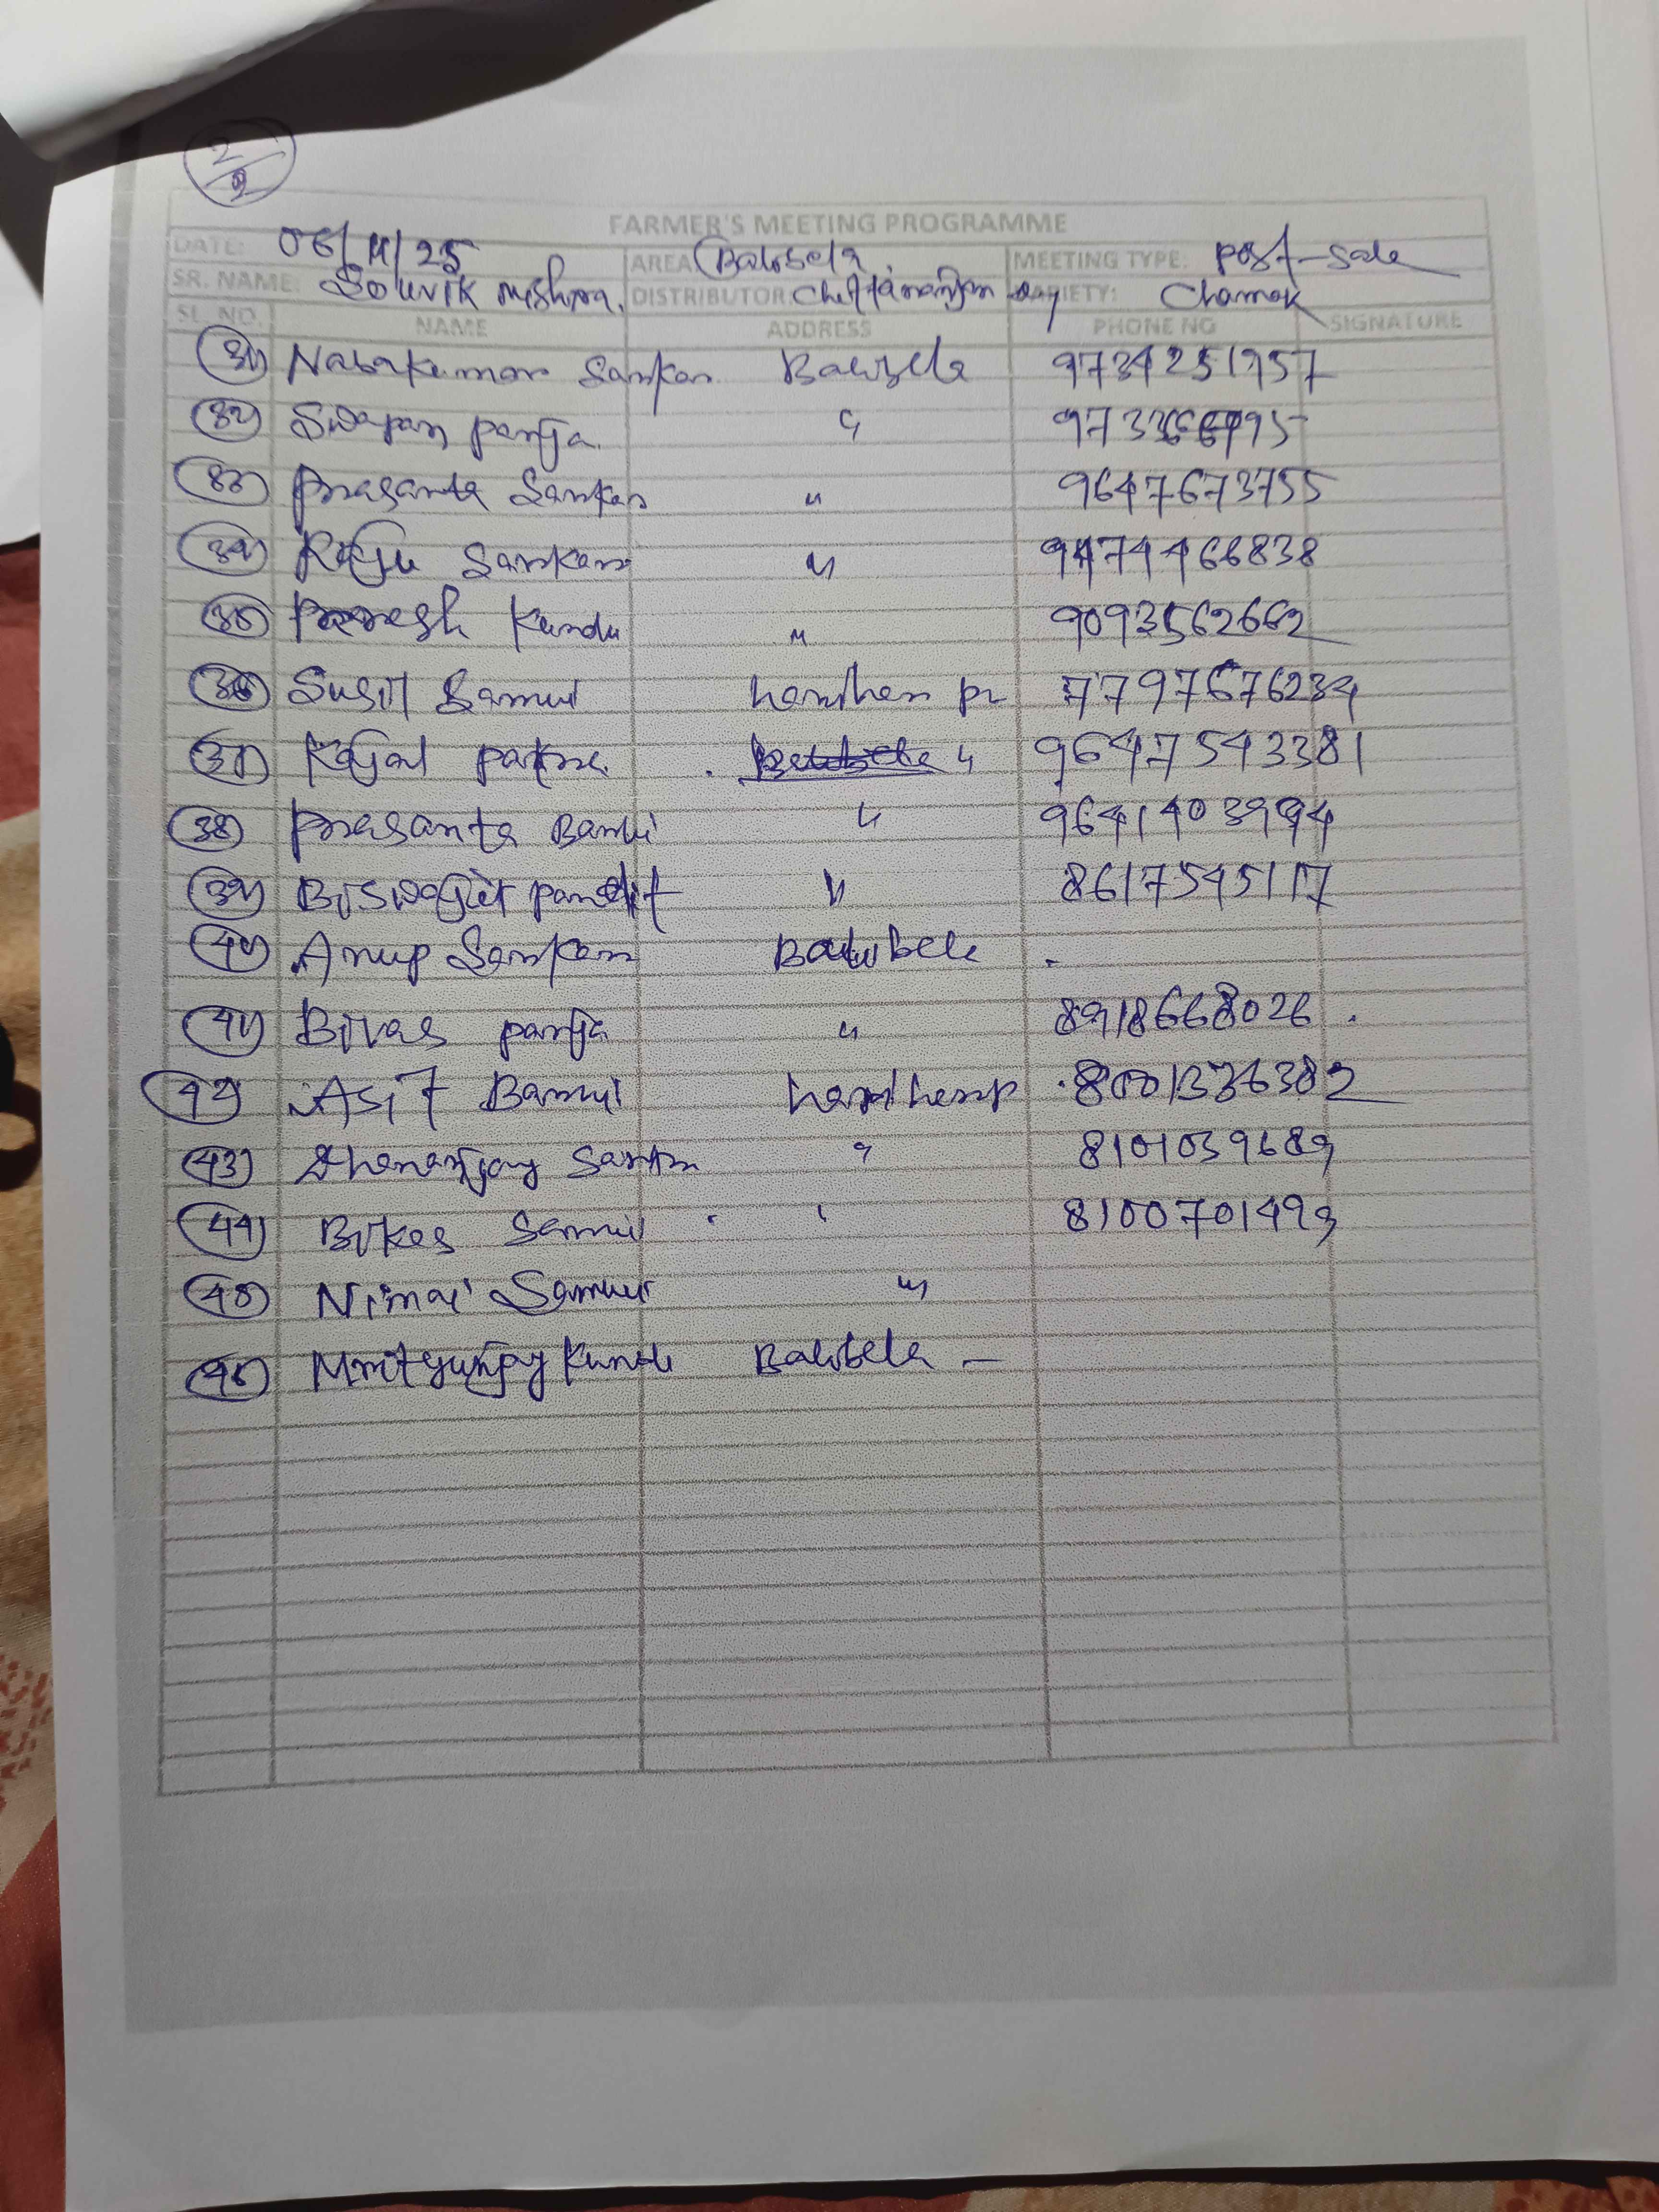 2/2
FARMER'S MEETING PROGRAMME
DATE: 06/11/25 AREA Balibela. MEETING TYPE: post-sale
SR. NAME: Souvik Mishra. DISTRIBUTOR: Chittaranjan Dey VARIETY: Chamak
SL. NO. NAME ADDRESS PHONE NO SIGNATURE
31) Nabakumar Sarkar Balibela 9734251957
32) Swapan panja. "
33) Prasanta Sarkar " 9647673755
34) Raju Sarkar " 9474466838
35) Paresh Kundu " 9093562662
36) Susil Samui pr 7797676234
37) Kajal " 9647543381
38) Prasanta Barui " 9641403994
39) Biswajit pandit " 8617545117
40) Anup Sarkar Balibela .
41) Bivas panja " 8918668026 .
42) Asit Barui 8001336382
43) Dhananjay Santra " 8101039689
44) Bikas Samui " 8100701493
45) Nimai Samui "
46) Mrityunjay Kundu Balibela -